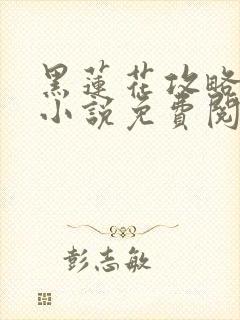 黑蓮花攻略
小說免費閱
彭志敏